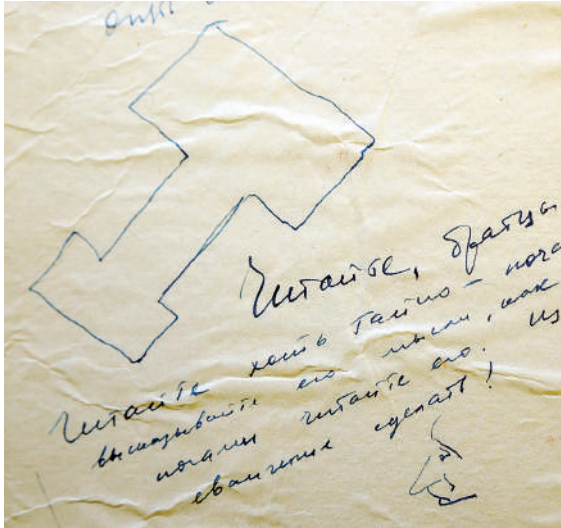 Читайте, братцы
Читайте хоть тайно - поча
высказывайте его мысли, как
ночами читайте его. Из
евангелие сделать!